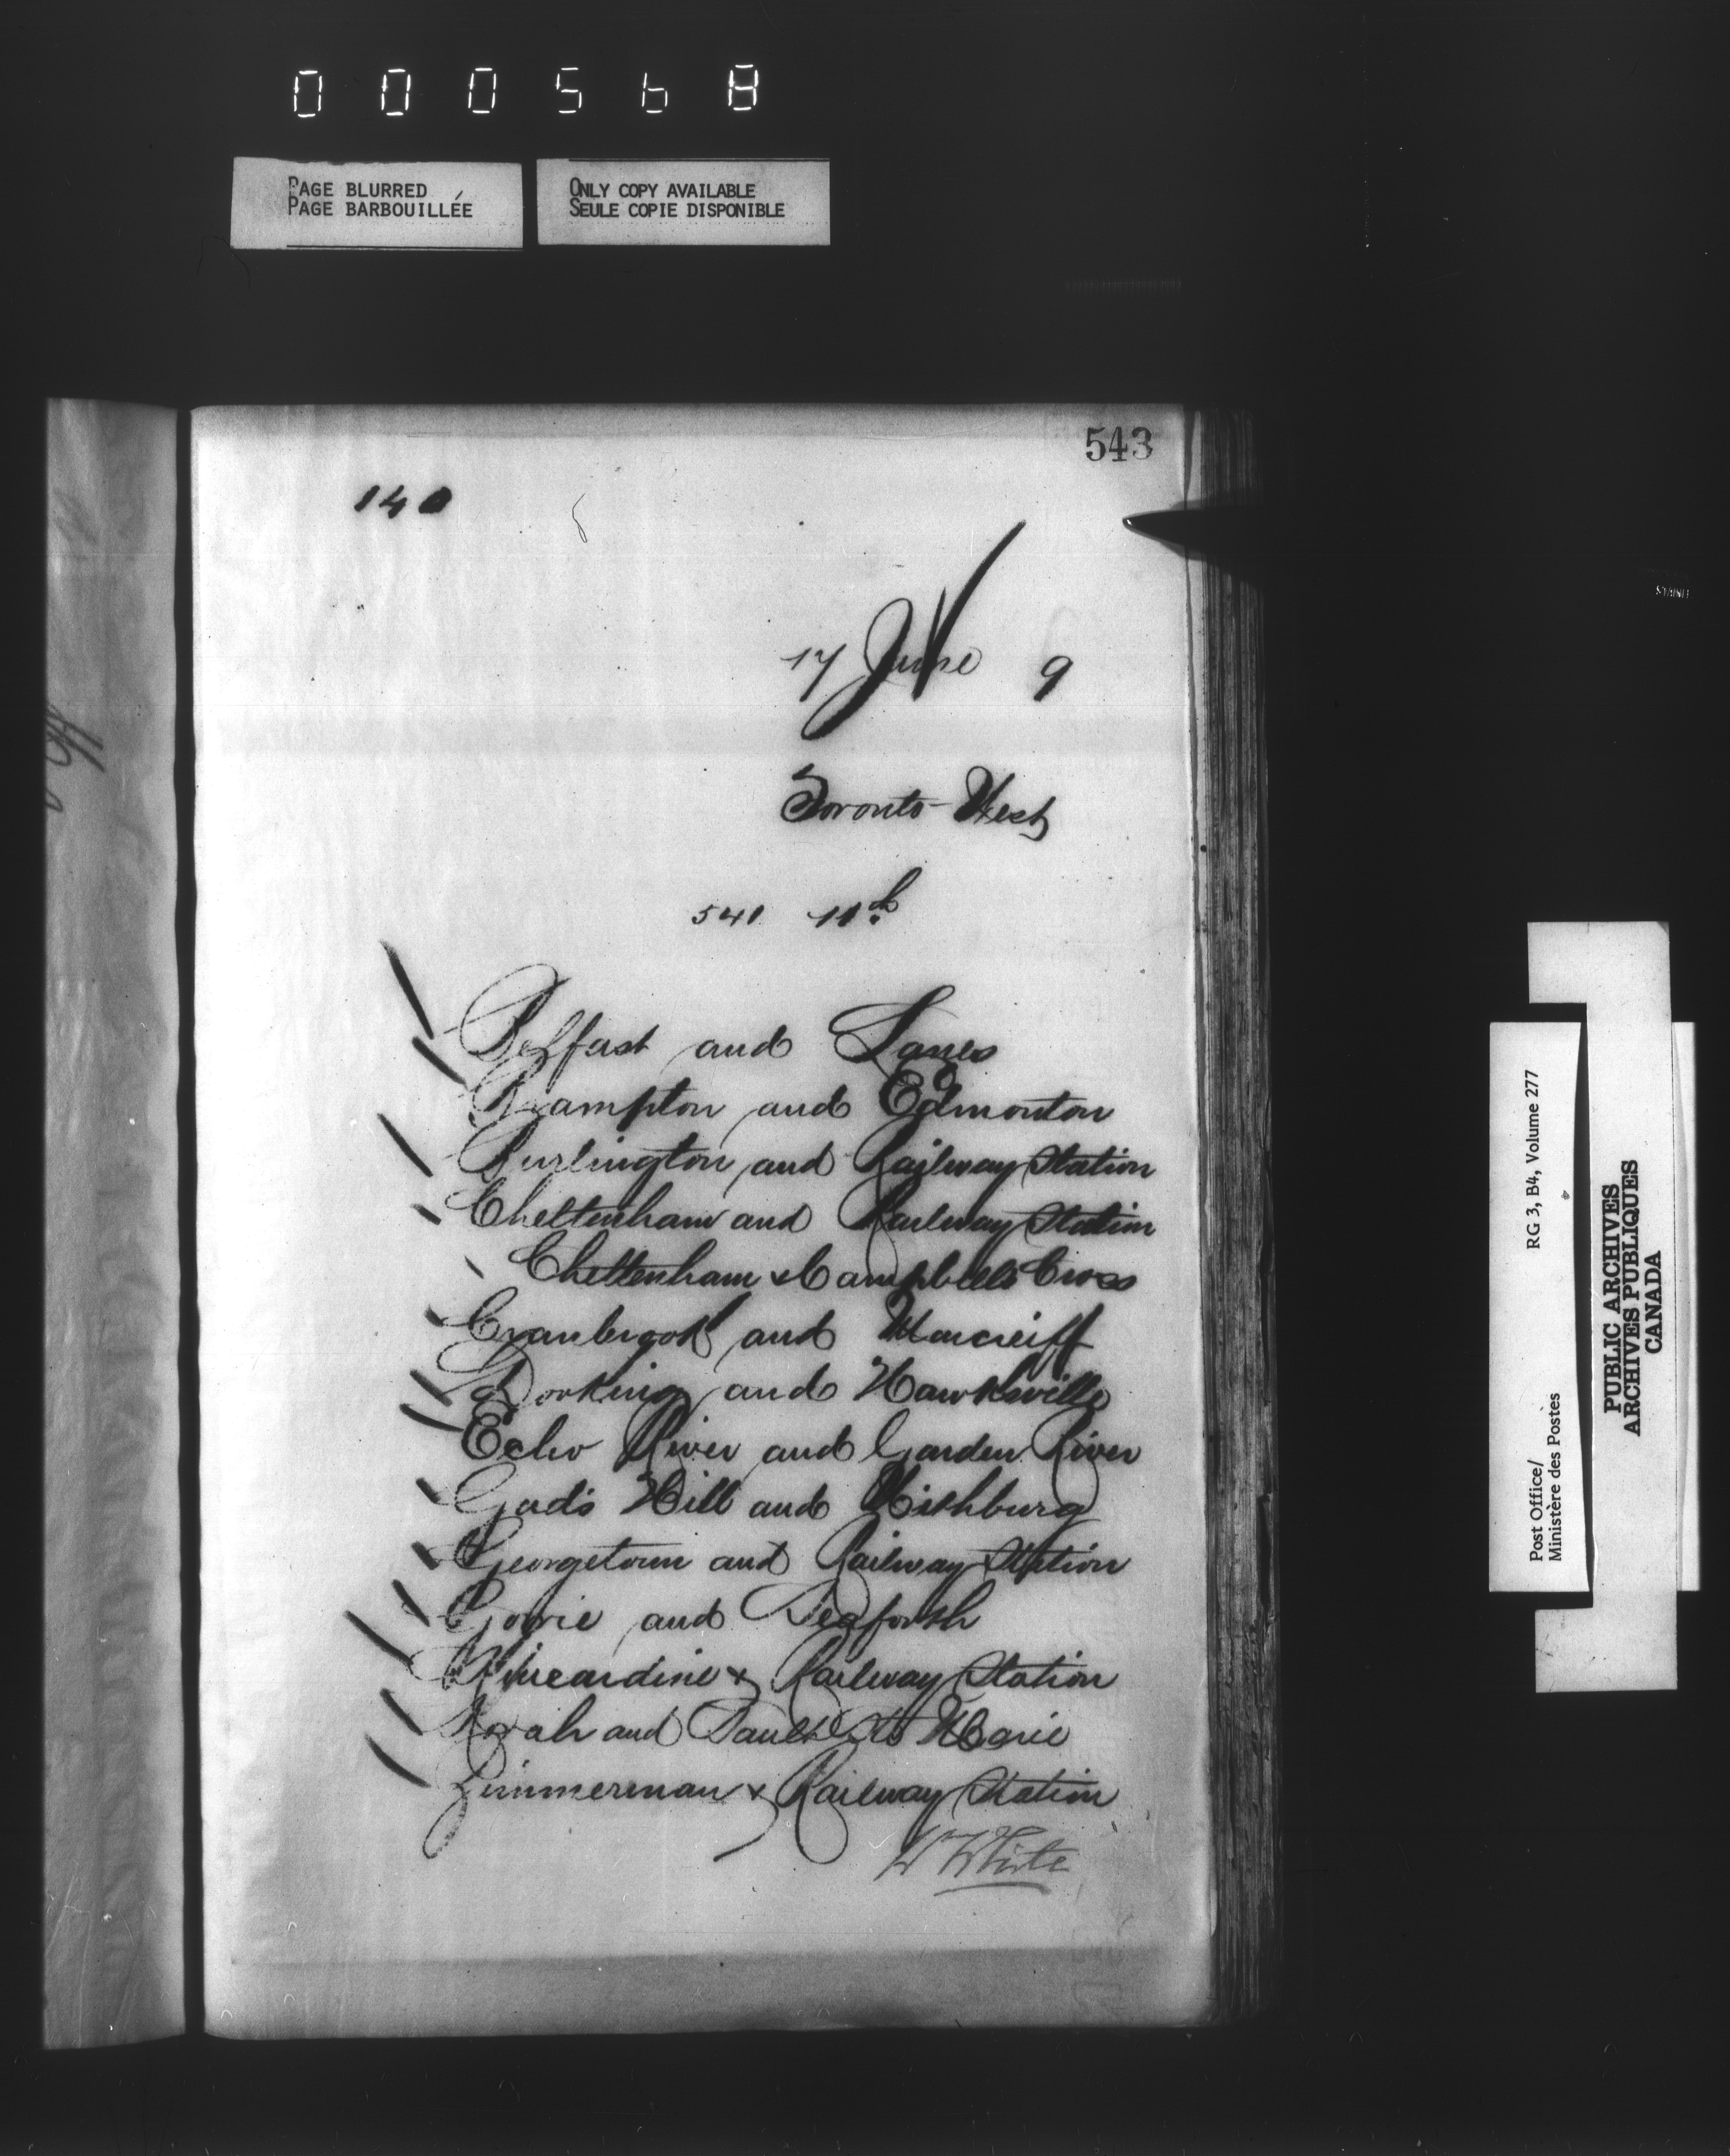 000568
PAGE BLURRED
PAGE BARBOUILLÉE
ONLY COPY AVAILABLE
SEULE COPIE DISPONIBLE
543
140
17 June 9
Toronto West
541 11th
Belfast and Lanes
Brampton and Edmonton
Burlington and Railway Station
Cheltenham and Railway Station
Cheltenham & Campbells Cross
Cranbrook and Moncrieff
Dorking and Hawksville
Echo River and Garden River
Gad's Hill and
Georgetown and Railway Station
Gorrie and Seaforth
Kincardine & Railway Station
Korah and Sault Ste Marie
Zimmerman & Railway Station
W White
RG 3, B4, Volume 277
Post Office/
Ministère des Postes
PUBLIC ARCHIVES
ARCHIVES PUBLIQUES
CANADA